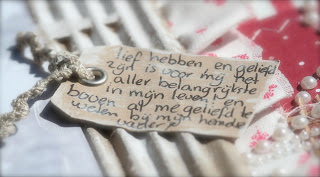 lief hebben en geliefd
zijn is voor mij het
aller belangrijkste
in mijn leven en
boven al me geliefd te
weten bij mijn hemelse
vader!